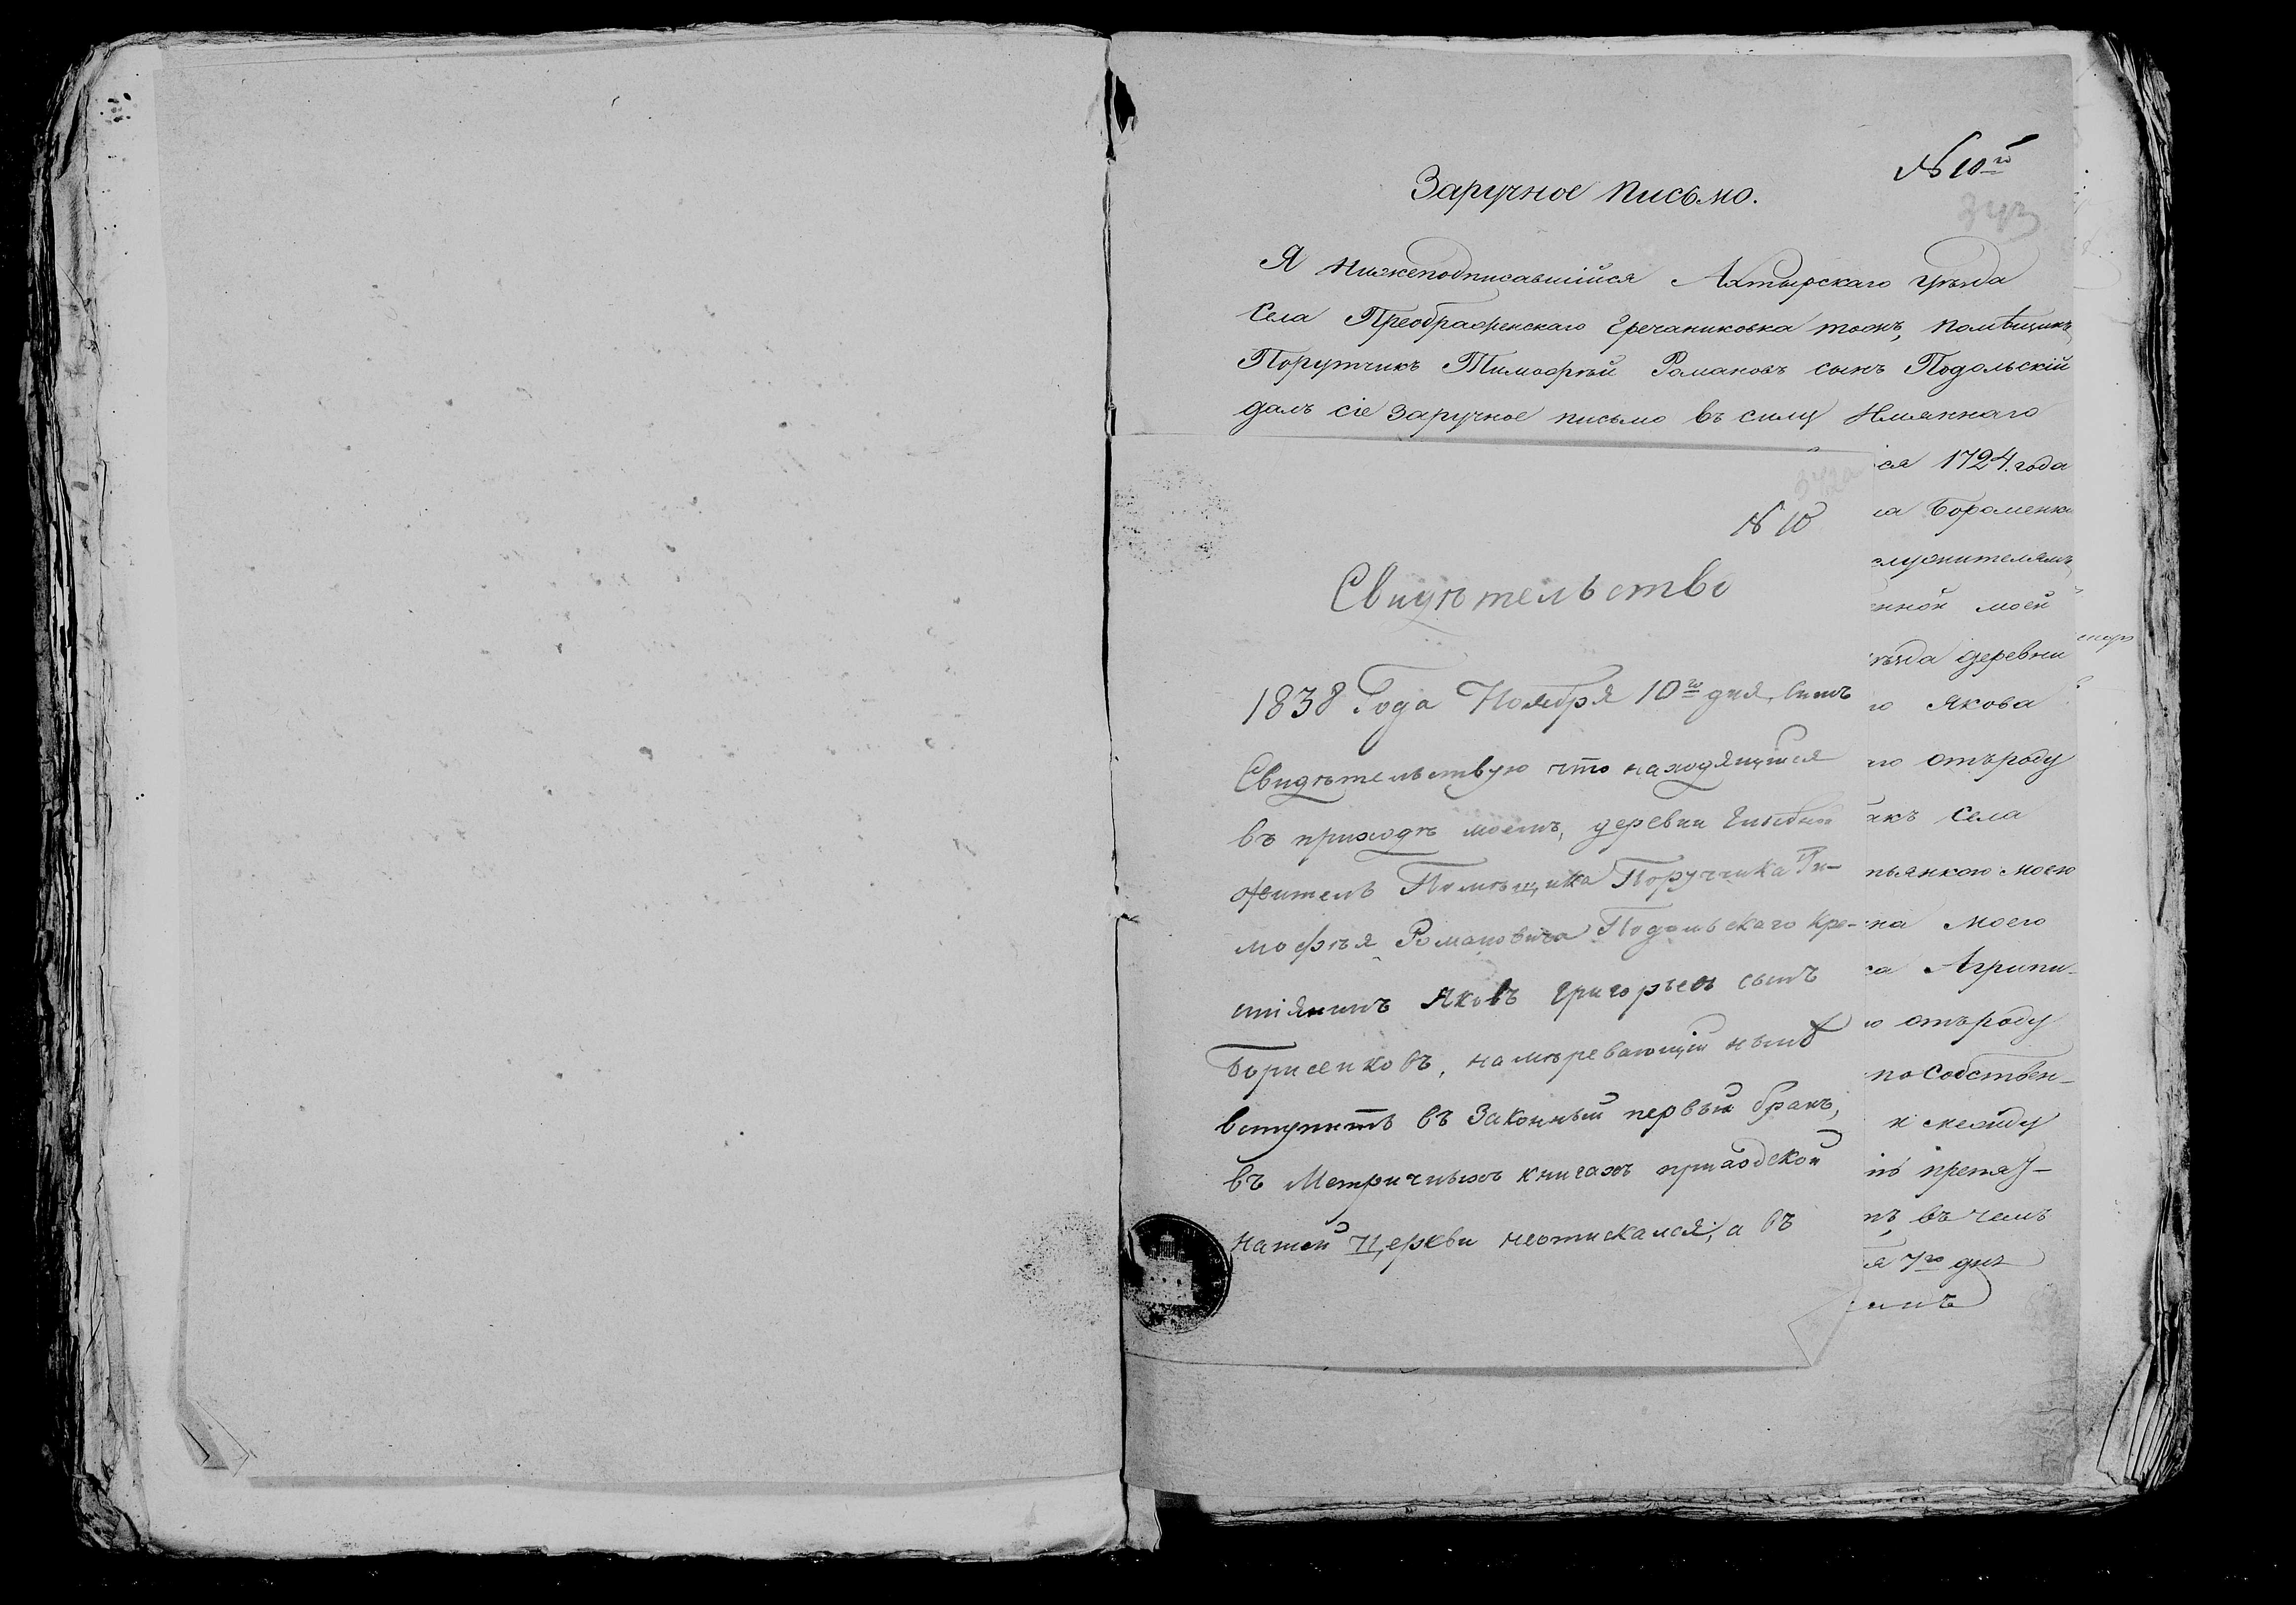 № 10го
Заручное письмо.
Я нижеподписавшійся Ахтырскаго уѣзда
Села Преображенскаго Гречаниковка тожъ, помѣщикъ
Порутчикъ Тимофѣй Романовъ сынъ Подольскій
далъ сіе заручное письмо въ силу Имяннаго
ся 1724. года
ла Бороменки
служителямъ
нной моей
ѣзда деревни
го Якова
го отъроду
акъ села
пьянкою моею
на моего
ка Агрипи-
ю отъроду
по собствен-
и между
притяз-
нъ, въ чемъ
ря 7го дня
№ 10
Свидѣтельство
1838 Года Ноября 10го дня, симъ
Свидѣтельствую что находящійся
въ приходѣ моемъ, деревни
житель Помѣщика Поручика Ти-
мофѣя Романовича Подольскаго Кре-
стіянинъ Яковъ Григорьевъ сынъ
Борисенковъ, намѣревающій нынѣ
вступить въ Законный первый бракъ,
въ Метричныхъ книгахъ приходской
нашей Церкви неотискался, а въ